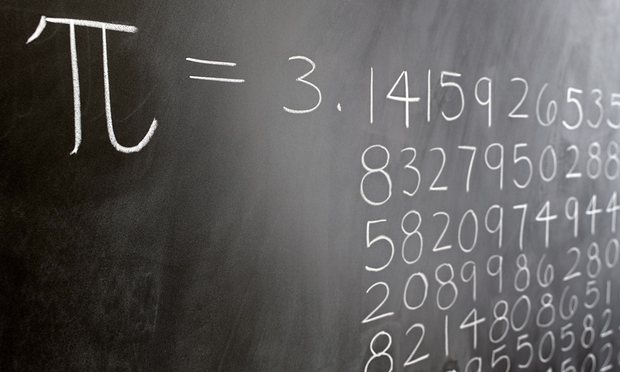 π = 3.1415926535
8327950288
5820974944
2089986280
8214808651
9550582